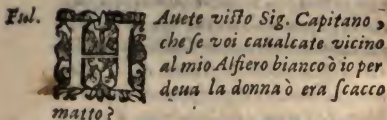 Fiol. HAuete viſto Sig. Capitano,
che ſe voi caualcate vicino
al mio Alfiero bianco ò io per
deua la donna ò era ſcacco
matto?